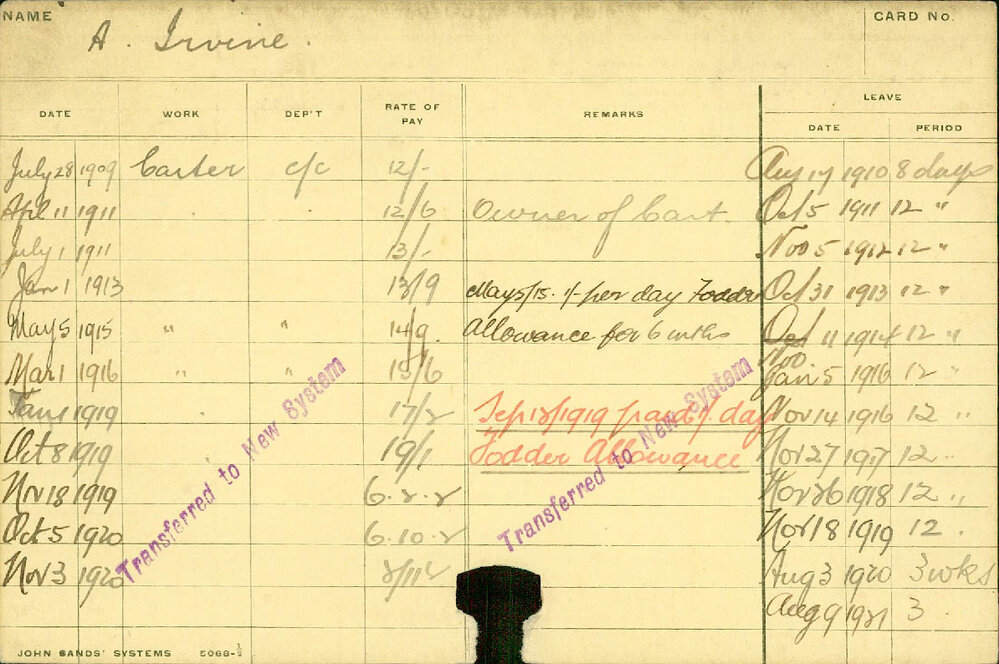 NAME A. Irvine. CARD No.
DATE WORK DEP'T RATE OF PAY REMARKS LEAVE
DATE PERIOD
July 28 1909 Carter c/c 12/- Aug 17 1910 8 days
Apl 11 1911 " " 12/6 Owner of Cart. Oct 5 1911 12 "
July 1 1911 13/- Nov 5 1912 12 "
Jan 1 1913 13/9 May 5/15. 1/- per day Fodder Oct 31 1913 12 "
May 5 1915 " " 14/9. Allowance for 6 mths Oct 11 1914 12 "
Mar 1 1916 " " 15/6 Nov Jan 5 1916 12 "
Jan 1 1919 17/2 Sep 12/1919 paid 1/ day Nov 14 1916 12 "
Oct 8 1919 19/1 Fodder Allowance Nov 27 1917 12 "
Nov 18 1919 6.2.2 Nov 26 1918 12 "
Oct 5 1920 6.10.2 Nov 18 1919 12.
Nov 3 1920 Aug 3 1920 3 wks
Aug 9 1921 3
Transferred to New System
Transferred to New System
JOHN SANDS' SYSTEMS 5068-½